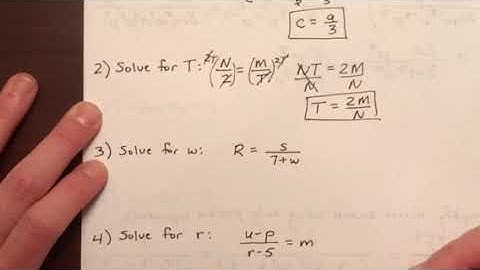 C = a/3
2) Solve for T: 2T(N/2) = (M/T)2T NT/N = 2M/N
T = 2M/N
3) Solve for w: R = s/7+w
4) Solve for r: u-p/r-5 = m